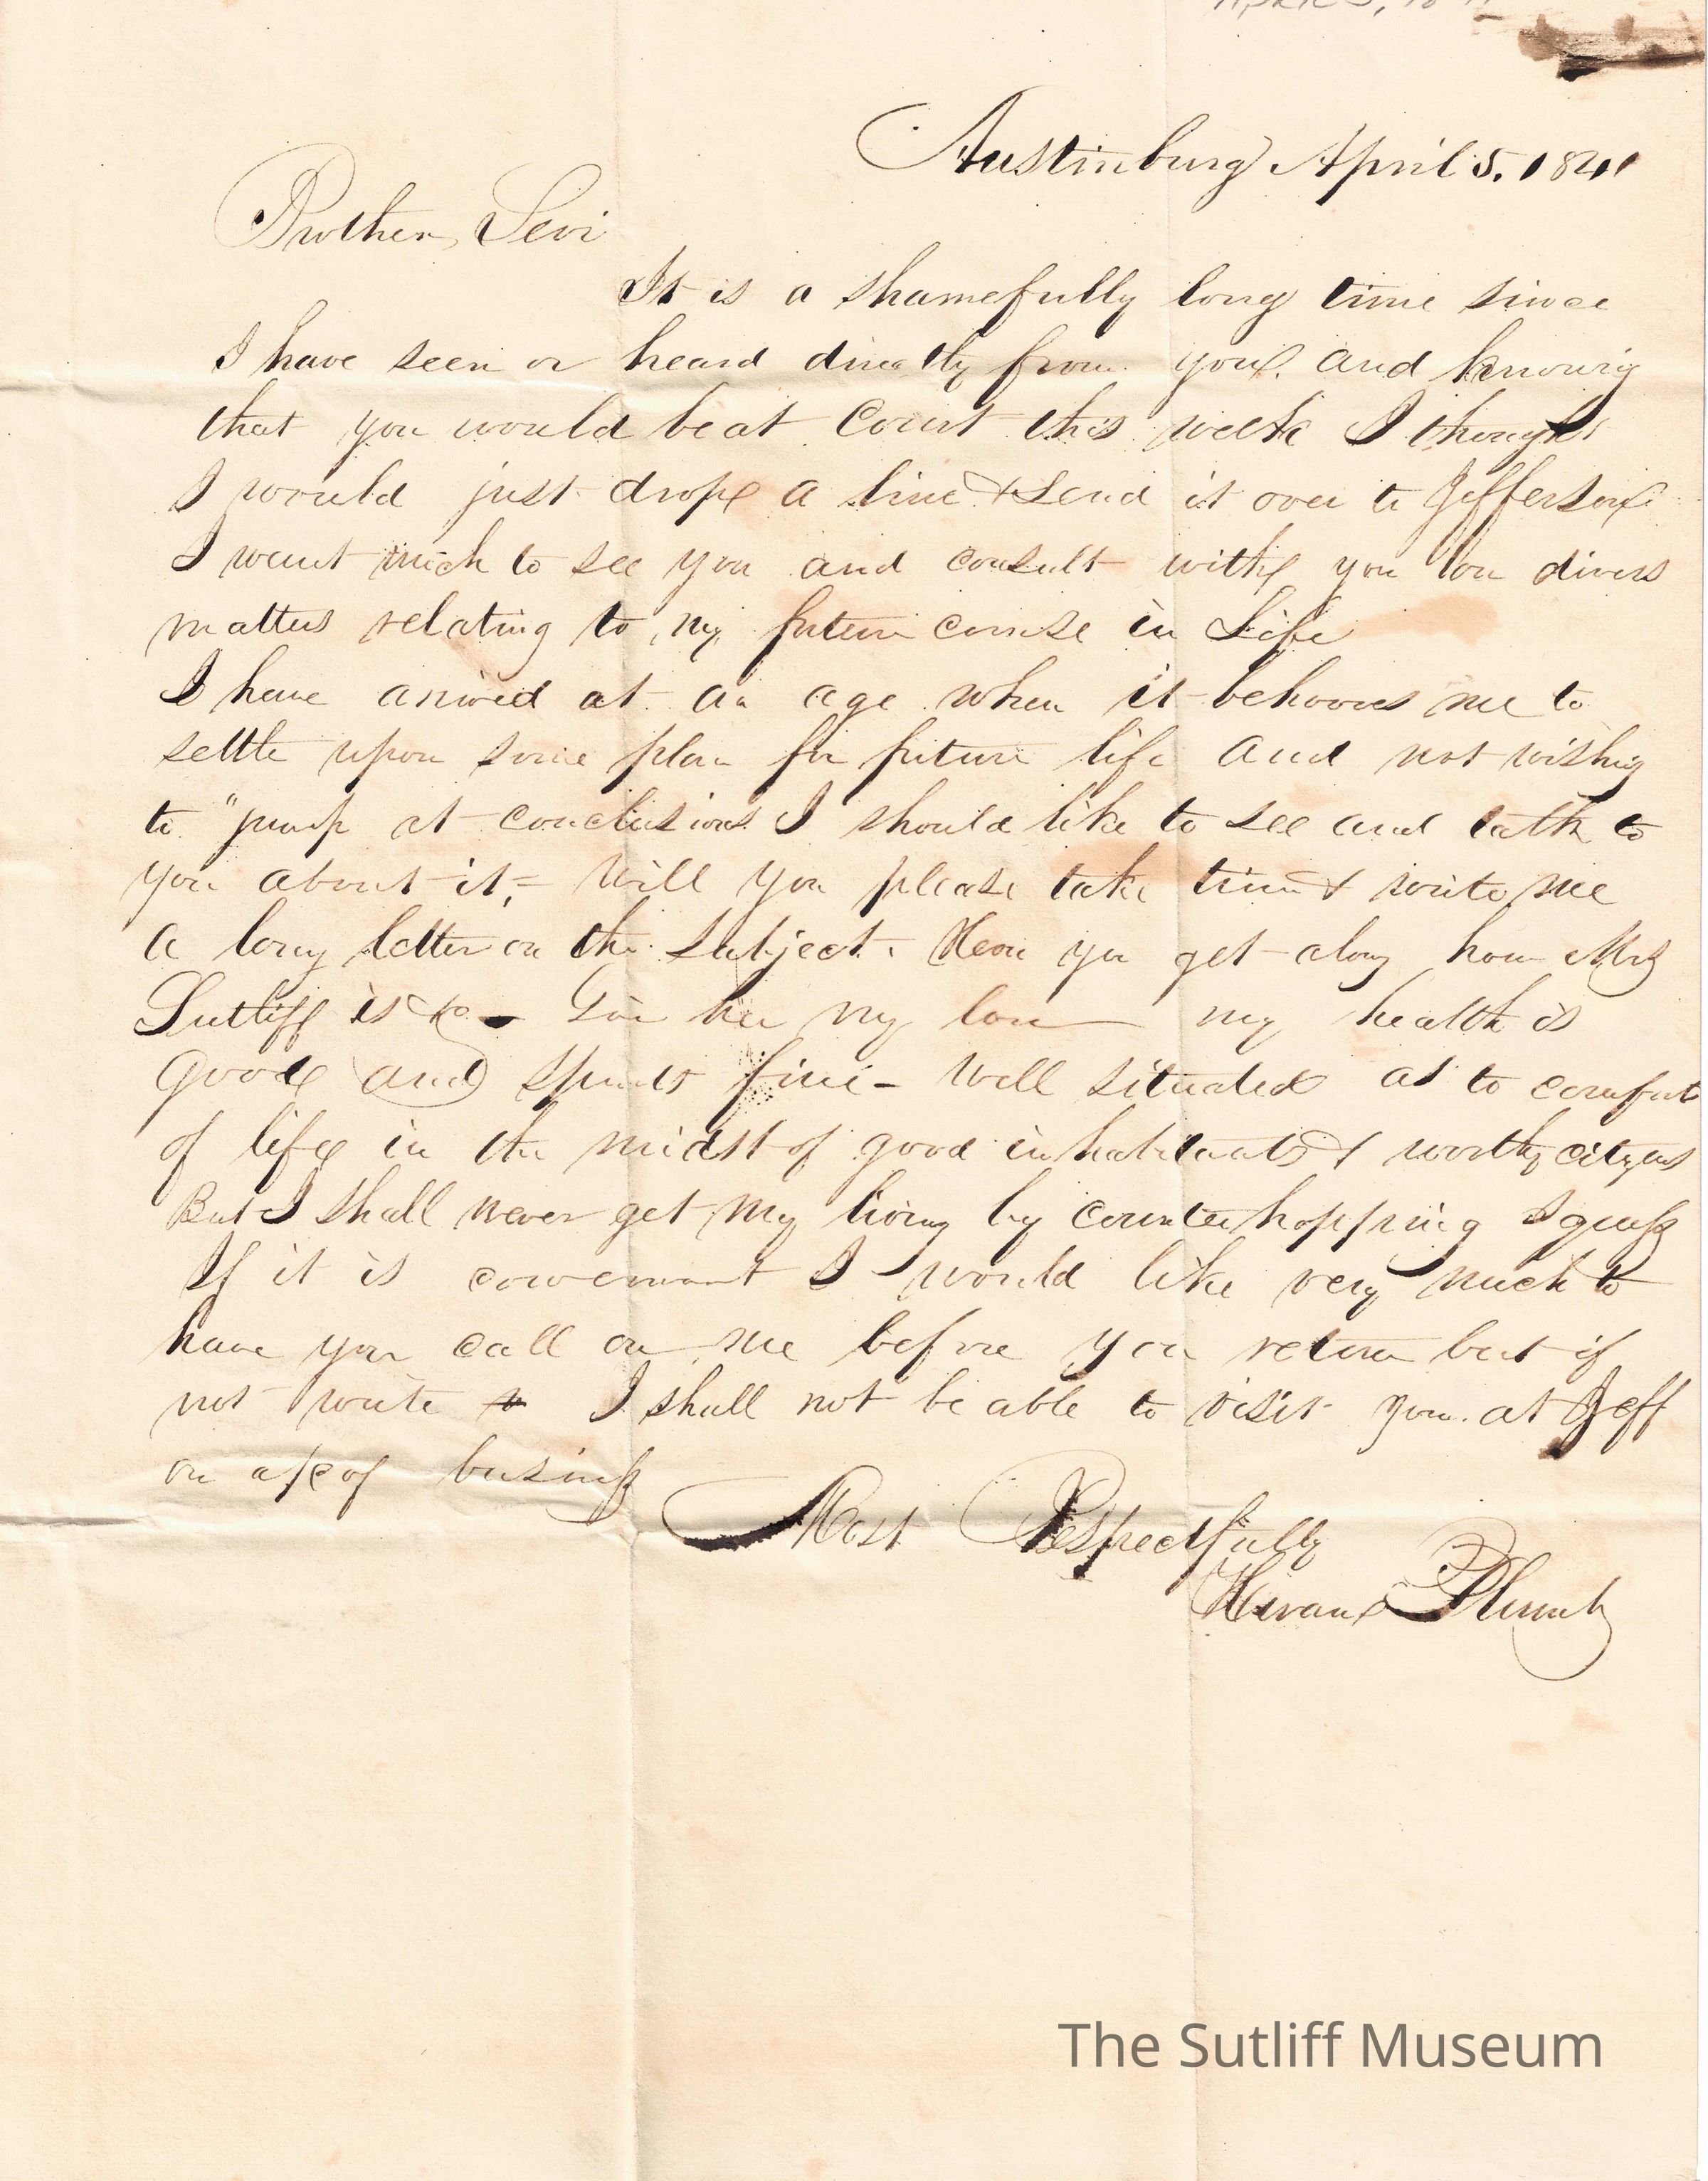 Austinburg April 5. 1841
Brother, Levi
It is a shamefully long time since
I have seen or heard directly from you. and knowing
that you would be at Court this week I thought
I would just drop a line & send it over to Jefferson
I want much to see you and consult with you on divers
matters relating to my future course in Life
I have arived at an age when it behooves me to
settle upon some plan for future life and not wishing
to "jump at conclusions I should like to see and talk to
you about it, = Will you please take time & write me
a long letter on the subject. How you get along how Mrs
Sutliff is &c - Give her my love my health is
good and spirits fine - Well situated as to comfort
of life in the midst of good inhabitants & worthy citizens
But I shall never get my living by counter hopping I guess
If it is convenient I would like very much to
have you call on me before you return but if
not write I shall not be able to visit you at Jeff
on a/c of business
Most Respectfully
Hiram Plumb
The Sutliff Museum